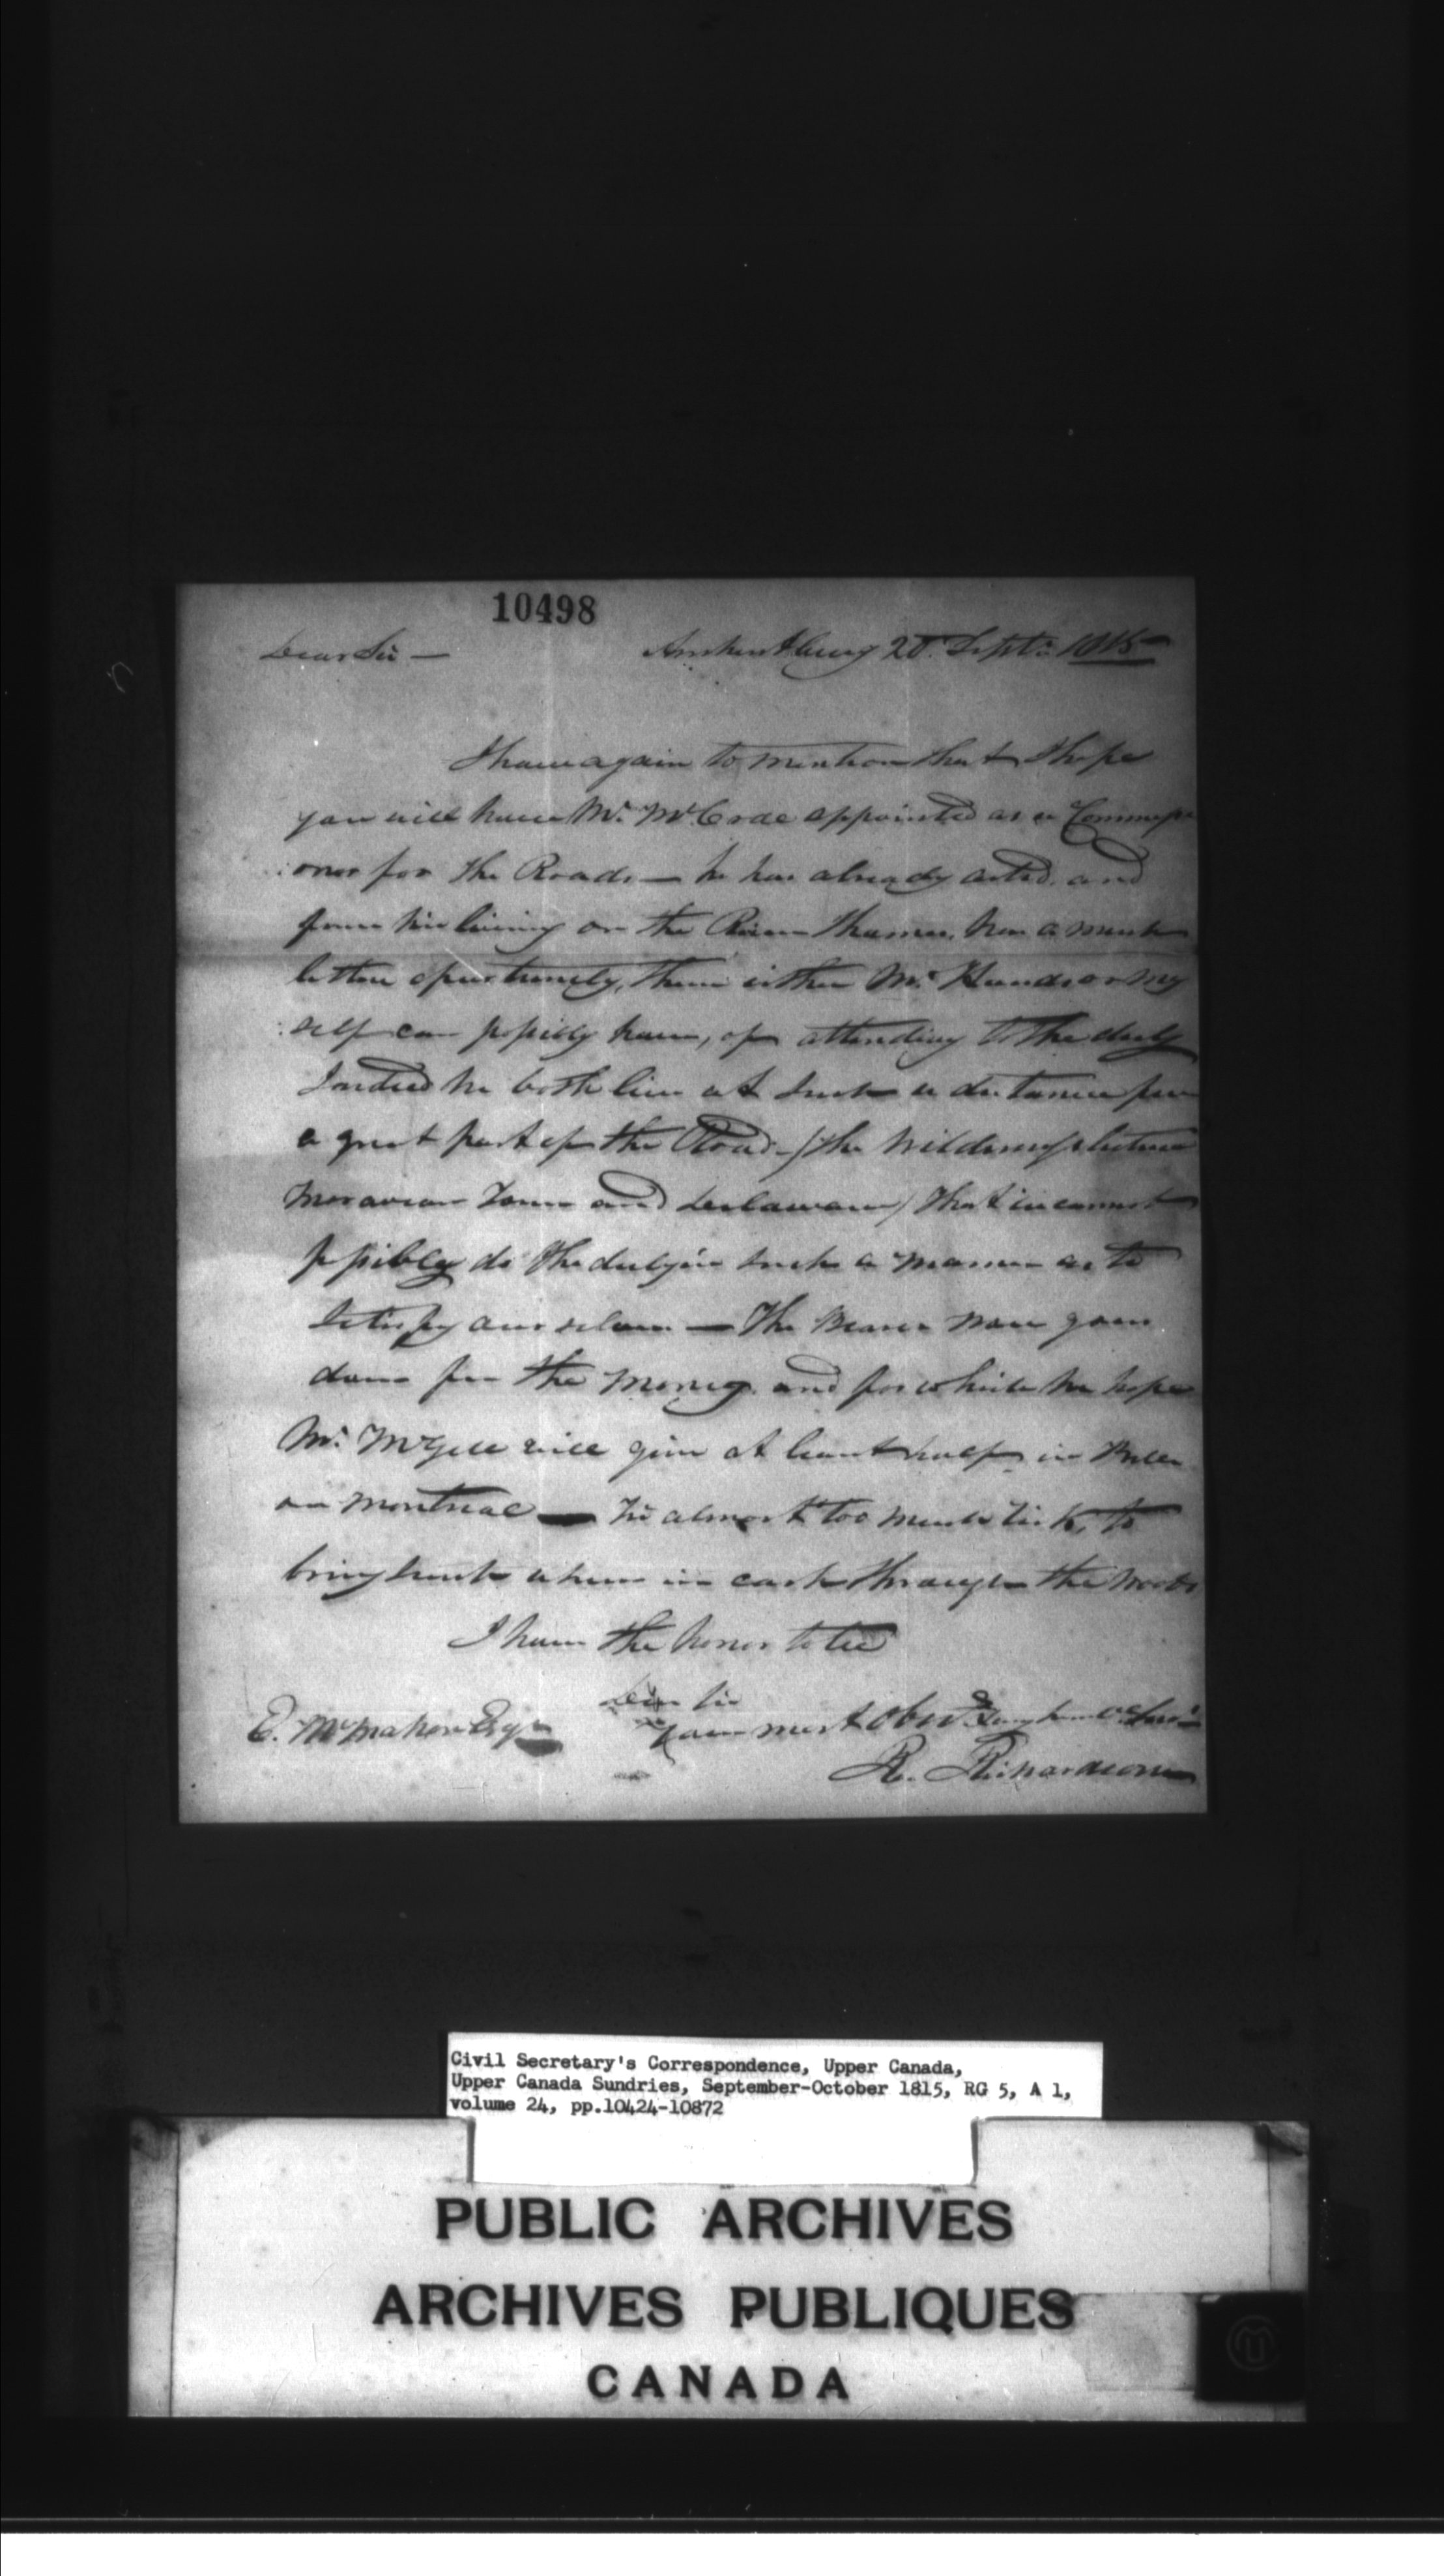 10498
Dear Sir — Amherstburg 20. Septr. 1815
I have again to mention that I hope
you will have Mr. McCrae appointed as a Commissi
:oner for the Roads — he has already acted, and
from his living on the River Thames, has a much
better opertunety, then either Mr. Hands or my
:self can possibly have, of attending to the duty
Indeed we both live at such a distance from
a great part of the Road — (the Wilderness between
Moravian Town and Delaware) that we cannot
possibly do the duty in such a manner as to
satisfy ourselves — The Bearer now goes
down for the Money, and for which we hope
Mr. McGill will give at least half in Bills
on Montreal — Tis almost too much risk, to
bring such a sum in cash through the Woods
I have the honor to be
Dear Sir
your most Obt. & very humble Servt.
E. McMahon Esqr.
R. Richardson
Civil Secretary's Correspondence, Upper Canada,
Upper Canada Sundries, September-October 1815, RG 5, A 1,
volume 24, pp.10424-10872
PUBLIC ARCHIVES
ARCHIVES PUBLIQUES
CANADA